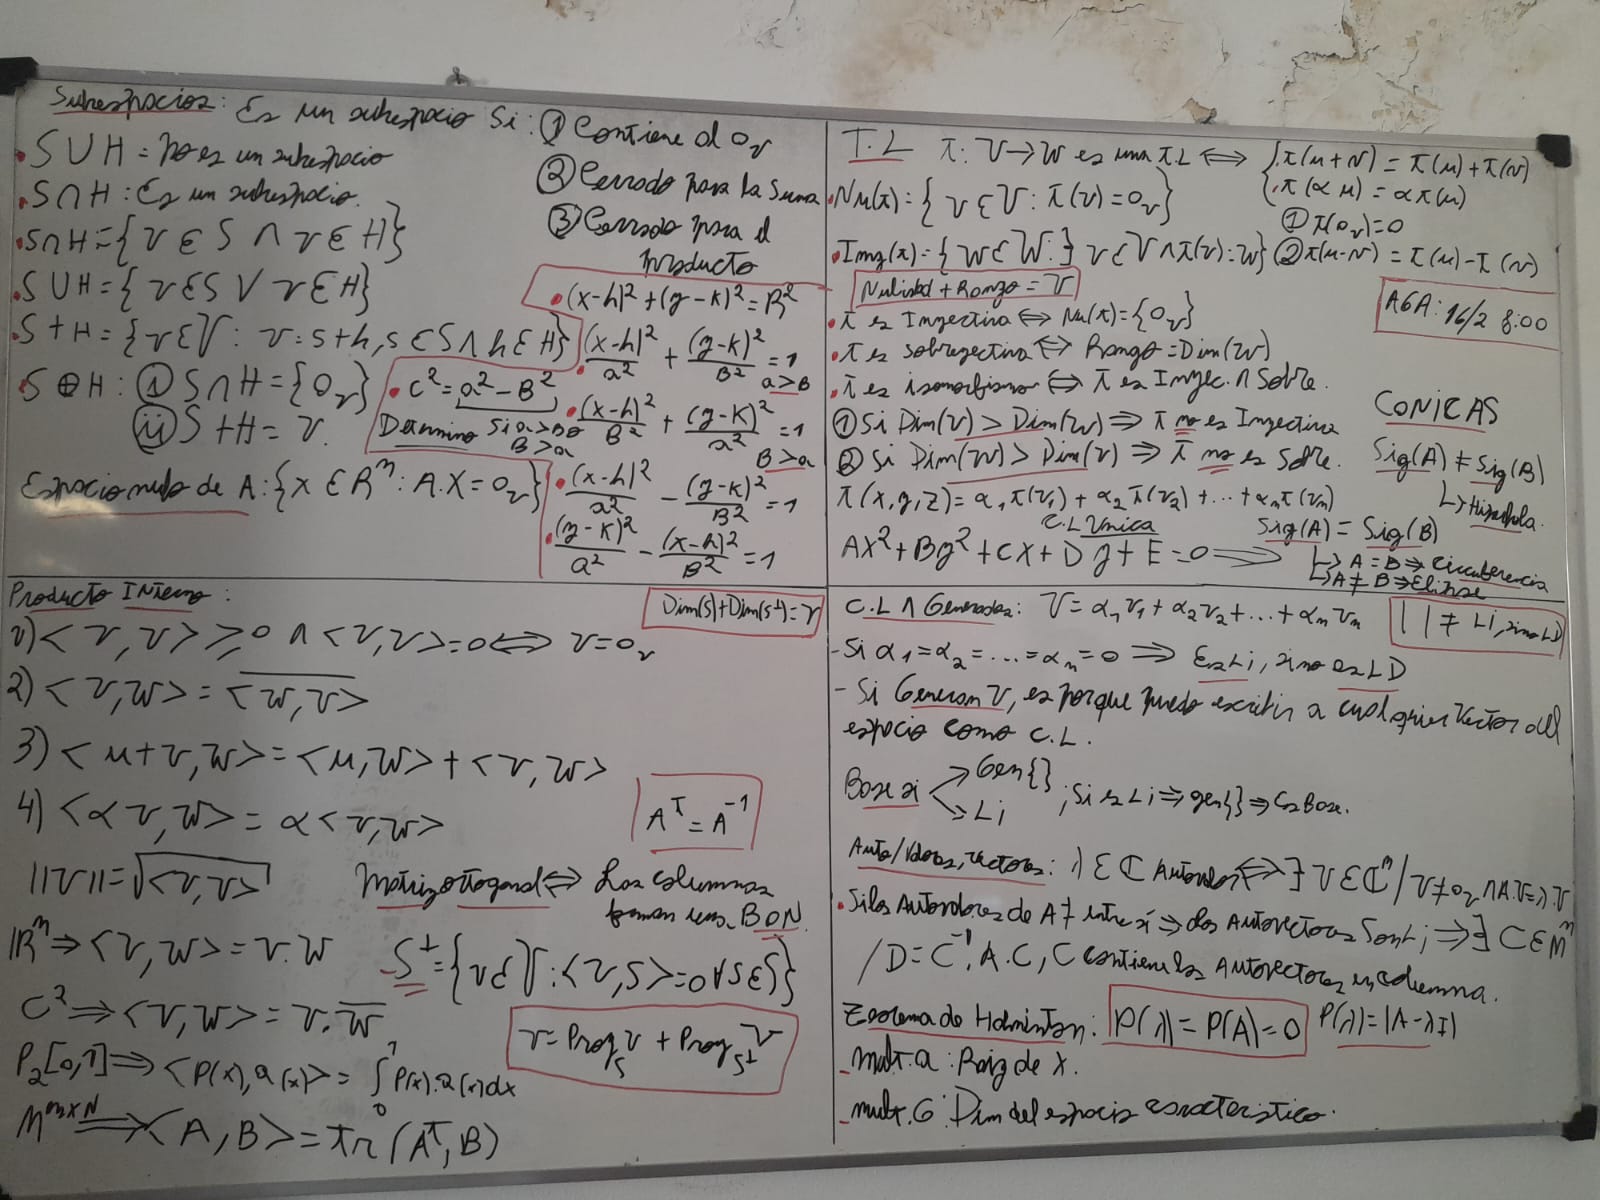 Subespacios: Es un subespacio Si: ① Contiene el 0v
② Cerrado para la Suma
③ Cerrado para el
producto
• S ∪ H = No es un subespacio
• S ∩ H: Es un subespacio.
• S∩H = {v ∈ S ∧ v ∈ H}
• S ∪ H = {v ∈ S ∨ v ∈ H}
• S + H = {v ∈ V: v = s+h, s ∈ S ∧ h ∈ H}
S ⊕ H: ① S ∩ H = {0v}
ii) S + H = V.
Espacio nulo de A: {x ∈ R^n: A.X = 0v}
• (x-h)² + (y-k)² = R²
• (x-h)²/a² + (y-k)²/B² = 1
a > B
• C² = a² - B²
Determino Si a > B o
B > a
• (x-h)²/B² + (y-k)²/a² = 1
B > a
• (x-h)²/a² - (y-k)²/B² = 1
• (y-k)²/a² - (x-h)²/B² = 1
T.L T: V → W es una T.L ⟺ { .T(u+v) = T(u) + T(v)
.T(α u) = α T(u)
① T(0v) = 0
② T(u-v) = T(u) - T(v)
• Nu(T) = {v ∈ V: T(v) = 0v}
• Img(T) = {w ∈ W: ∃ v ∈ V ∧ T(v) = w}
Nulidad + Rango = V
AGA: 16/2 8:00
• T es Inyectiva ⟺ Nu(T) = {0v}
• T es sobreyectiva ⟺ Rango = Dim(W)
• T es isomorfismo ⟺ T es Inyec. ∧ Sobre.
① Si Dim(V) > Dim(W) ⟹ T no es Inyectiva
② Si Dim(W) > Dim(V) ⟹ T no es Sobre.
T(x,y,z) = α₁T(v₁) + α₂T(v₂) + ... + αnT(vn)
C.L Unica
CONICAS
Sig(A) ≠ Sig(B)
↳ Hiperbola.
AX² + By² + CX + Dy + E = 0 ⟹ Sig(A) = Sig(B)
↳ A = B ⟹ Circunferencia
↳ A ≠ B ⟹ Elipse
Producto Interno:
Dim(S) + Dim(S⊥) = V
1) <v, v> ≥ 0 ∧ <v, v> = 0 ⟺ v = 0v
2) <v, w> = \overline{<w, v>}
3) <u+v, w> = <u, w> + <v, w>
4) <α v, w> = α <v, w>
A^T = A^-1
||v|| = √<v, v>
Matriz ortogonal ⟺ Las columnas
forman una BON.
R^n ⟹ <v, w> = v.w
S⊥ = {v ∈ V: <v, s> = 0 ∀ s ∈ S}
C² ⟹ <v, w> = v.\overline{w}
v = Proy_S v + Proy_S⊥ v
P₂[0,1] ⟹ <P(x), Q(x)> = ∫₀¹ P(x).Q(x) dx
M^mxN ⟹ <A, B> = Tr(A^T, B)
C.L ∧ Generadores: V = α₁v₁ + α₂v₂ + ... + αn vn
| | ≠ Li, sino LD
- Si α₁ = α₂ = ... = αn = 0 ⟹ Es Li, sino es LD
- Si Generan V, es porque puedo escribir a cualquier Vector del
espacio como C.L.
Base si → Gen{}
→ Li
; Si es Li ⟹ gen{} ⟹ Es Base.
Auto/Valores, Vectores: λ ∈ ℂ Autovalor ⟺ ∃ v ∈ ℂ^n / v ≠ 0v ∧ A.v = λ.v
• Si los Autovalores de A ≠ entre sí ⟹ los Autovectores Son Li ⟹ ∃ C ∈ M^n
/ D = C^-1.A.C, C contiene los Autovectores en columna.
Teorema de Hamilton: P(λ) = P(A) = 0 P(λ) = |A - λI|
- mult.a: Raiz de X.
- mult.G: Dim del espacio característico.